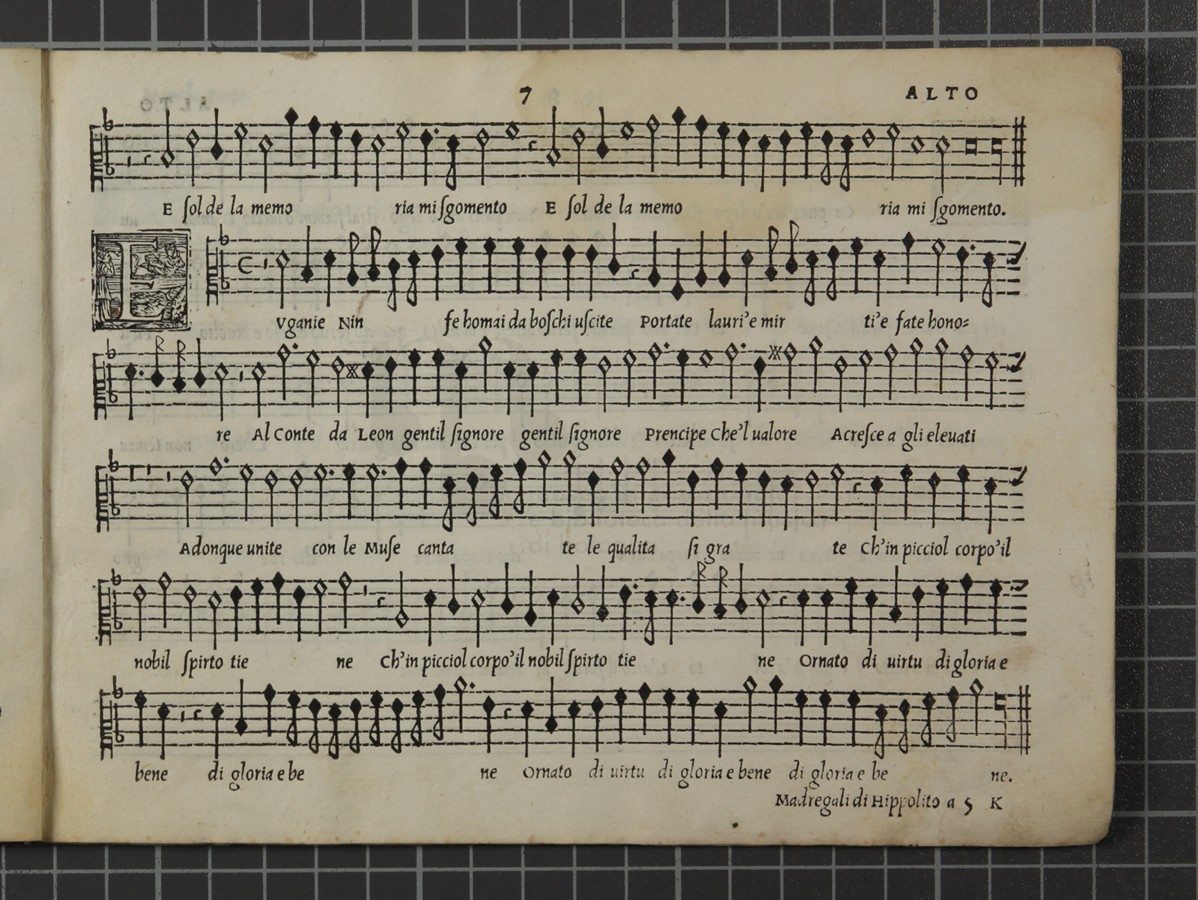 7 ALTO
E ſol de la memo ria mi ſgomento E ſol de la memo ria mi ſgomento.
E vganie Nin fe homai da boſchi uſcite Portate lauri'e mir ti'e fate hono=
re Al Conte da Leon gentil ſignore gentil ſignore Prencipe Che'l ualore Acreſce a gli eleuati
Adonque unite con le Muſe canta te le qualita ſi gra te Ch'in picciol corpo'il
nobil ſpirto tie ne Ch'in picciol corpo'il nobil ſpirto tie ne Ornato di uirtu di gloria e
bene di gloria e be ne Ornato di uirtu di gloria e bene di gloria e be ne.
Madregali di Hippolito a 5 K